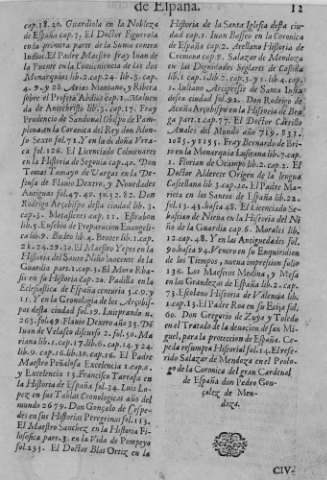 de España.
12
cap.18.20. Guardiola en la Nobleza
de España cap.7. El Doctor Figuerola
en la primera parte de la Suma contra
Indios. El Padre Maestro Fray Iuan de
la Puente en la Conueniencia de las dos
Monarquias lib.2.cap.24. lib.3. cap.
4. 9. y 28. Arias Montano, y Ribera
sobre el Profeta Abdias cap.1.
de Antichristo lib.3. cap.15. Fray
Prudencio de Sandoual Obispo de Pamplona
en la Coronica del Rey don Alonso
Sexto fol.71. Y en la de doña Vrraca
fol.126. El Licenciado Colmenares
en la Historia de Segouia cap.40. Don
Tomas Tamayo de Vargas en la Defensa
de Flauio Dextro, y Nouedades
Antiguas fol.47. Don
Rodrigo Arçobispo desta ciudad lib.3.
cap.3. Metasteues cap.11. Estrabon
lib.5. Eusebio de Preparacion Euangelica
lib.9. Beuter lib.1. cap.
El Maestro Yepes en la
Historia del Santo Niño Inocente de la
Guardia part.1. cap.3. El Moro Rasis
en su Historia cap.20. Padilla en la
Eclesiastica de España centuria
11. Y en la Coronologia de los Arçobispos
desta ciudad fol.19. Luitprando n.
265. fol.49. Flauio Dextro año 35. De
Iuan de Velasco discurso 2. fol.50. Mariana
lib.1. cap.17. lib.6. cap.
lib.9. cap.16. lib.10. cap. El Padre
Maestro Peñalosa Excelencia 1. cap.6.
y Excelencia 13. Francisco Tarrafa en
la Historia de España fol.34. Luis Lopez
en sus Tablas Cronologicas año del
mundo 2679. Don Gonçalo de Cespedes
en sus Historias Peregrinas fol.113.
El Maestro Sanchez en la Historia Filosofica
part.3. en la Vida de Pompeyo
fol.295. El Doctor Blas Ortiz en la
Historia de la Santa Iglesia desta ciudad
cap.1. Iuan Basseo en la Coronica
de España cap.2. Arellana Historia de
Cremona cap.8. Salazar de Mendoza
en las Dignidades Seglares de Castilla
lib.1. cap.1. lib.2. cap.3. y 5. lib.4. cap.
1. Iuliano Arcipreste de Santa Iusta
desta ciudad fol.92. Don Rodrigo de
Acuña Arçobispo en la Historia de Braga
part.1. cap.77. El Doctor Carrillo
Anales del Mundo año 719. 833.
1085. y 1195. Fray Bernardo de Brito
en la Monarquia Lusitana lib.7. cap.
1. Florian de Ocampo lib.2. cap.2. El
Doctor Alderete Origen de la lengua
Castellana lib.3. cap.10. El Padre Marieta
en los Santos de España lib.22.
fol.15. 45. hasta 48. El Licenciado Sebastian
de Nieua en la Historia del Niño
de la Guardia cap.6. Morales lib.
12. cap.48. Y en las Antiguedades fol.
9. hasta 94. Fenero en su Enquiridion
de los Tiempos, nueua impression folio
136. Los Maestros Medina, y Mesa
en las Grandezas de España lib.2. cap.
73. Escolano Historia de Valencia lib.
1. cap.13. El Padre Roa en su Ecija fol.
60. Don Gregorio de Tapia y Toledo
en el Tratado de la deuocion de san Miguel,
para la proteccion de España. Cepeda
resumpta Historial fol.14. El referido
Salazar de Mendoza en el Prologo
de la Coronica del gran Cardenal
de España don Pedro Gonçalez
de Mendoza.
CIV-